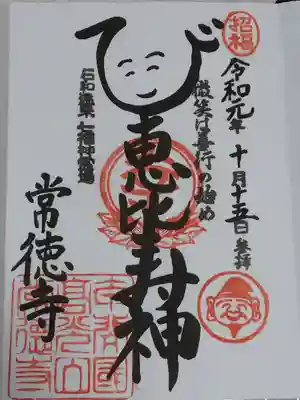 招福
令和元年十月十五日参拝
微笑は善行の始め
恵比寿神
石和 七福神霊場
常徳寺